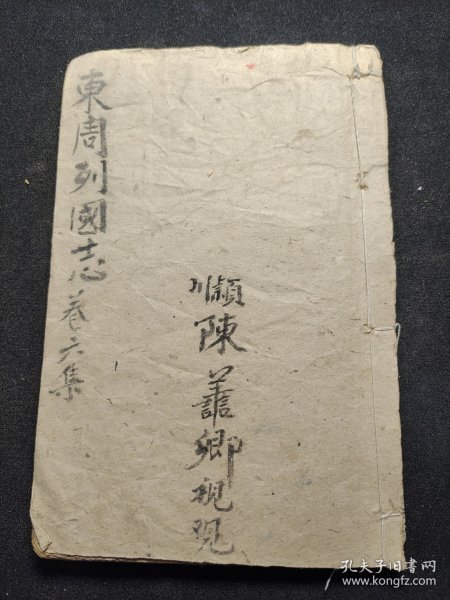 頴川
陳卿視
東周列國志卷六集
孔夫子旧书网
www.kongfz.com